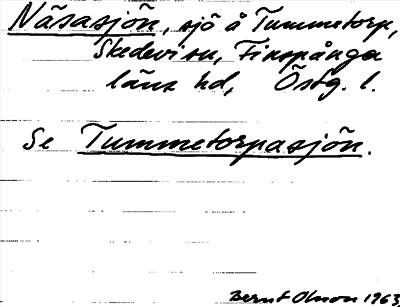 Näsasjön, sjö å Tummetorp,
Skedevi sn, Finspånga
läns hd, Östg. l.
Se Tummetorpasjön.
Bernt Olsson 1963.